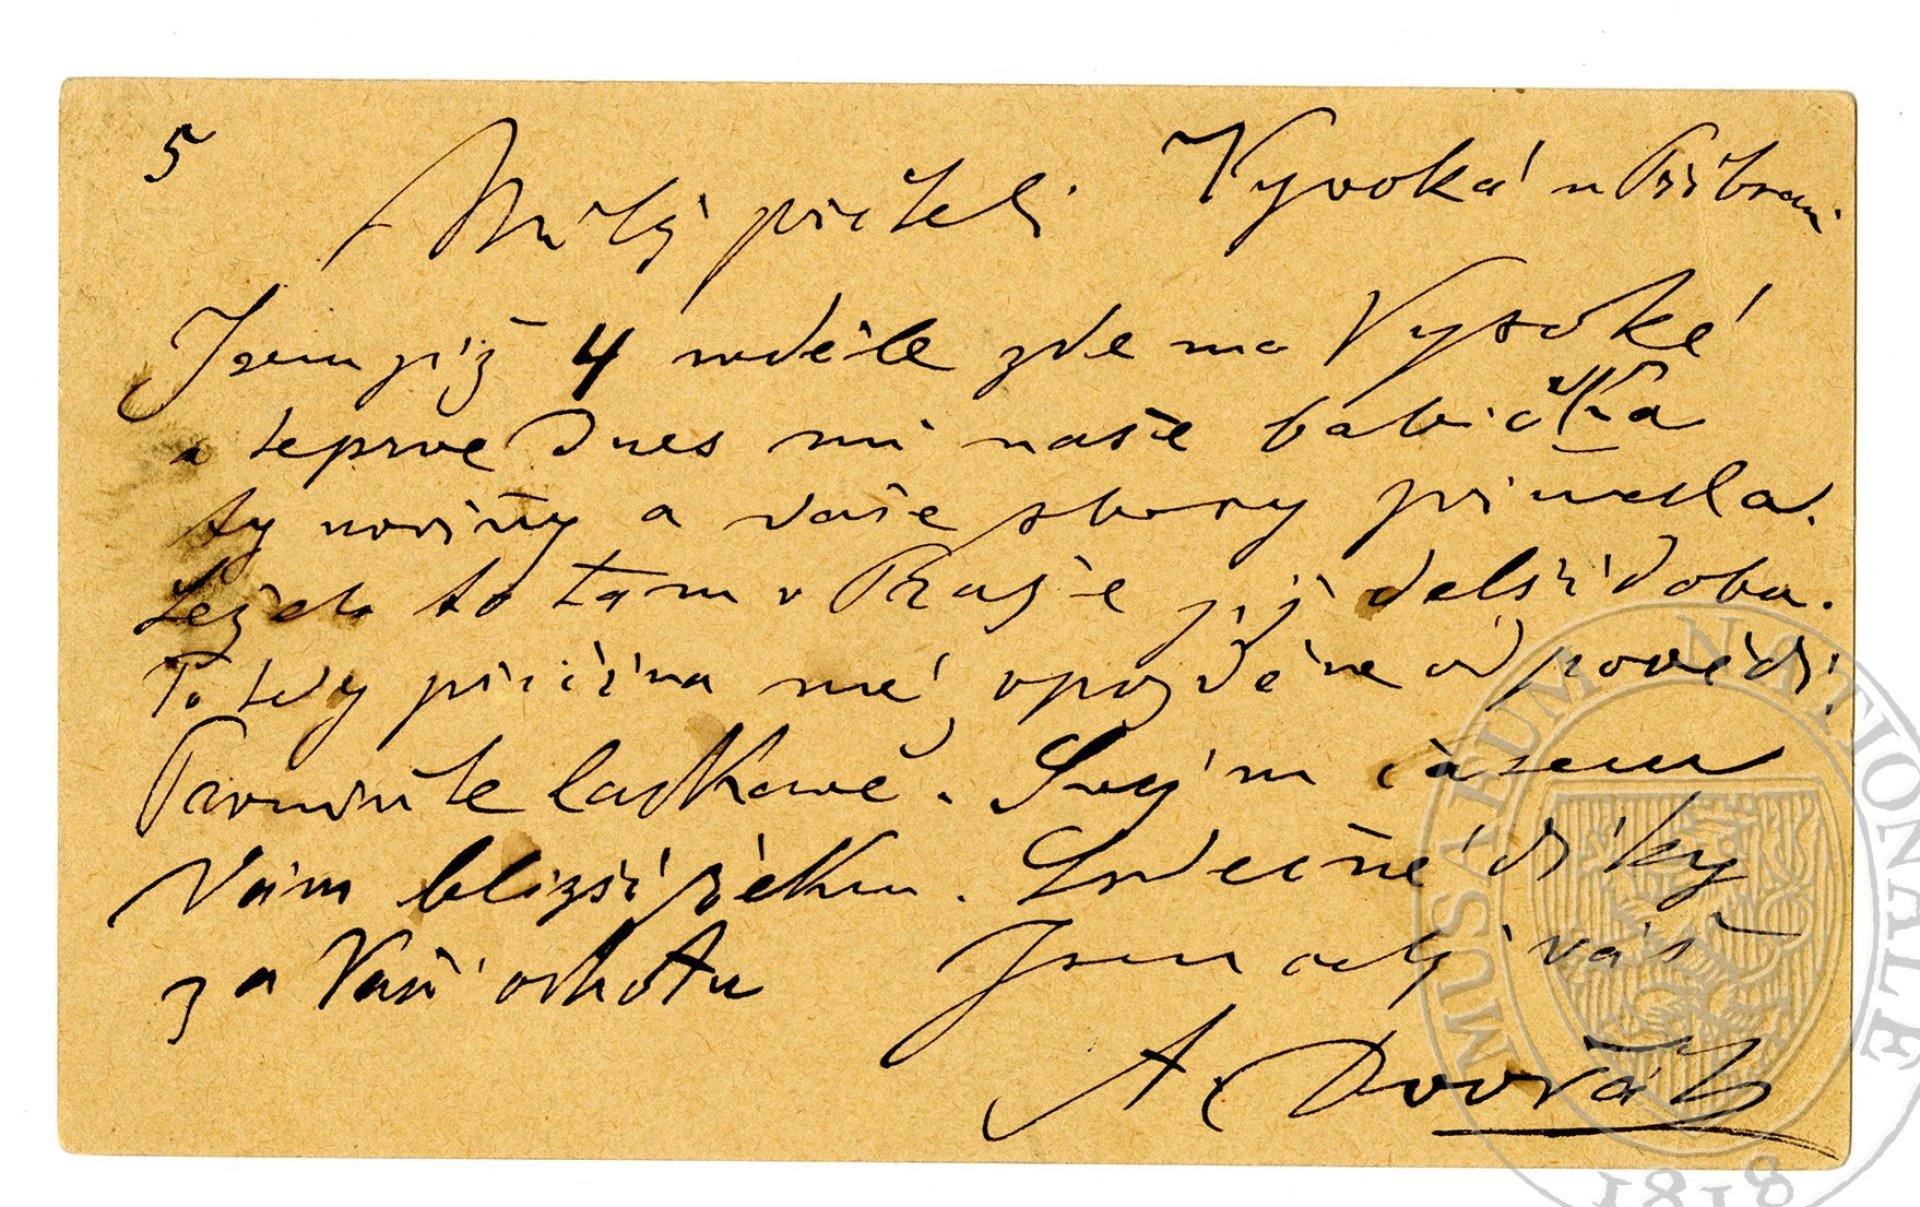 5
Milý příteli
Vysoká u Příbrami
Jsem již 4 neděle zde na Vysoké
a teprve dnes mi naše babička
ty noviny a vaše sbory přinesla.
Leželo to tam v Praze již delší doba.
To tedy příčina mé opožděné odpovědi.
Promiňte laskavě. Svým časem
Vám bližší řeknu. Srdečné díky
za Vaši ochotu Jsem celý váš
A. Dvořák
MUSAEUM NATIONALE
1818